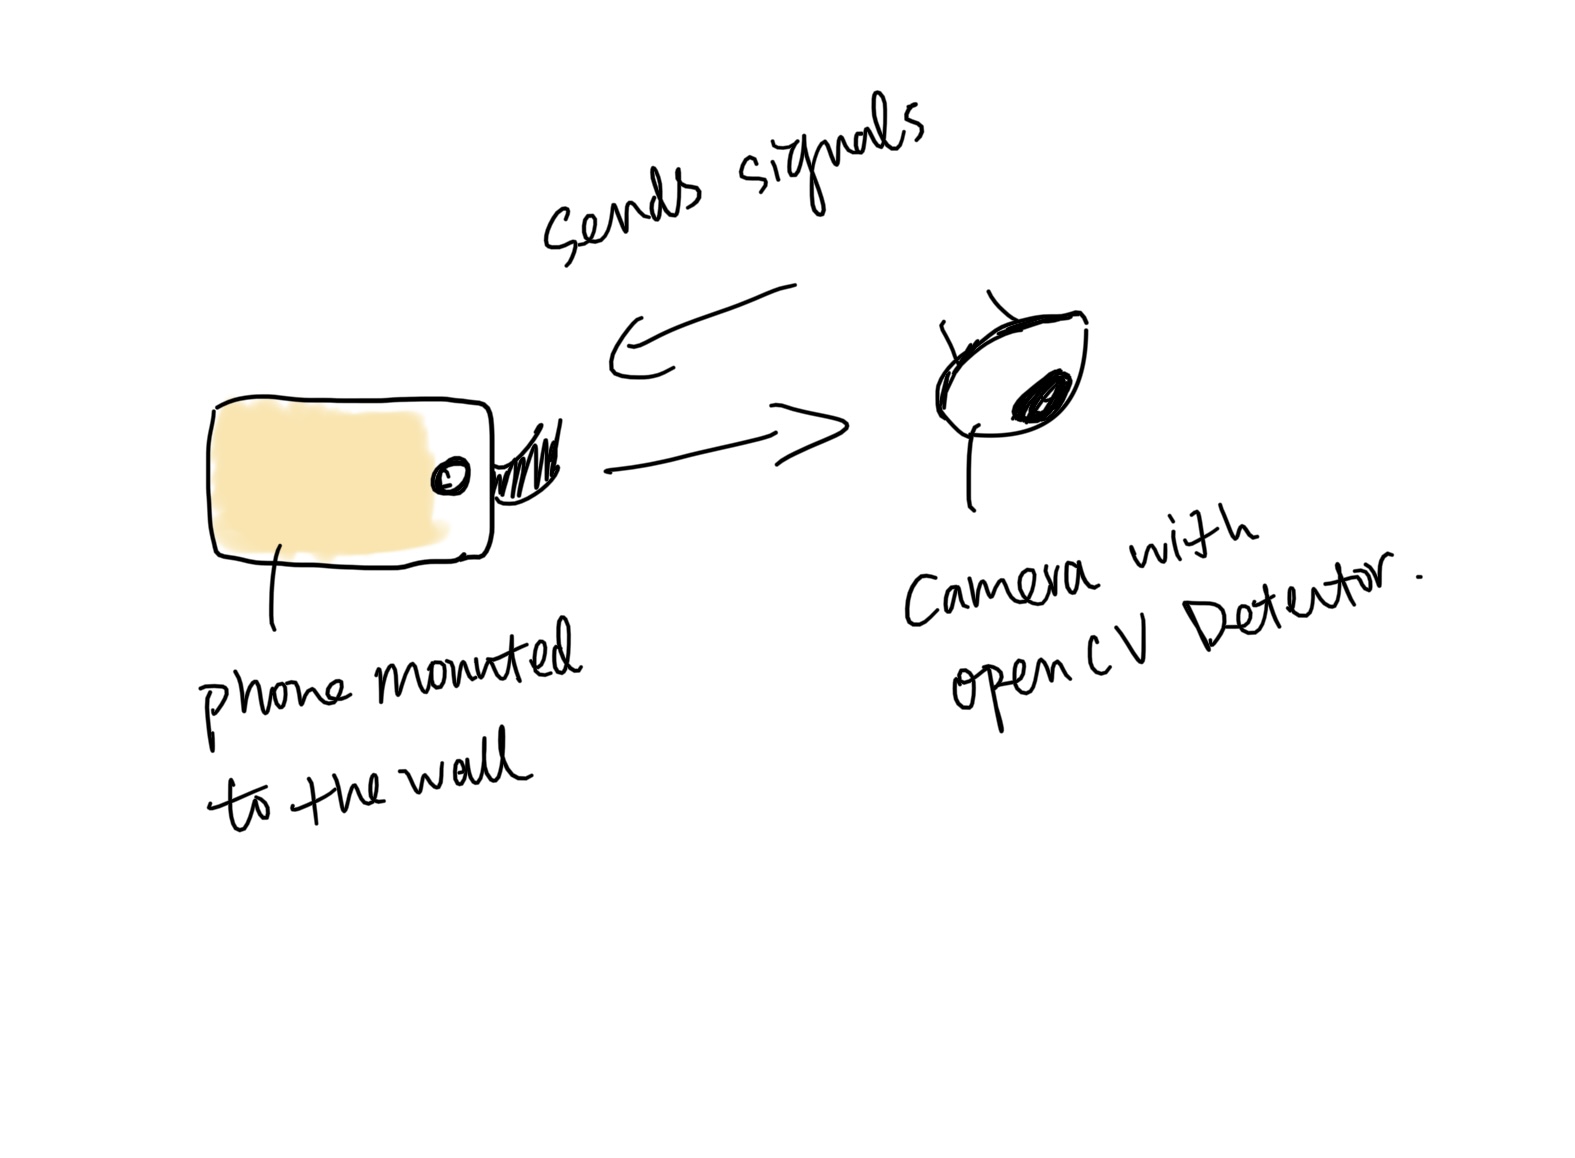 sends signals
phone mounted
to the wall
Camera with
open CV Detector.